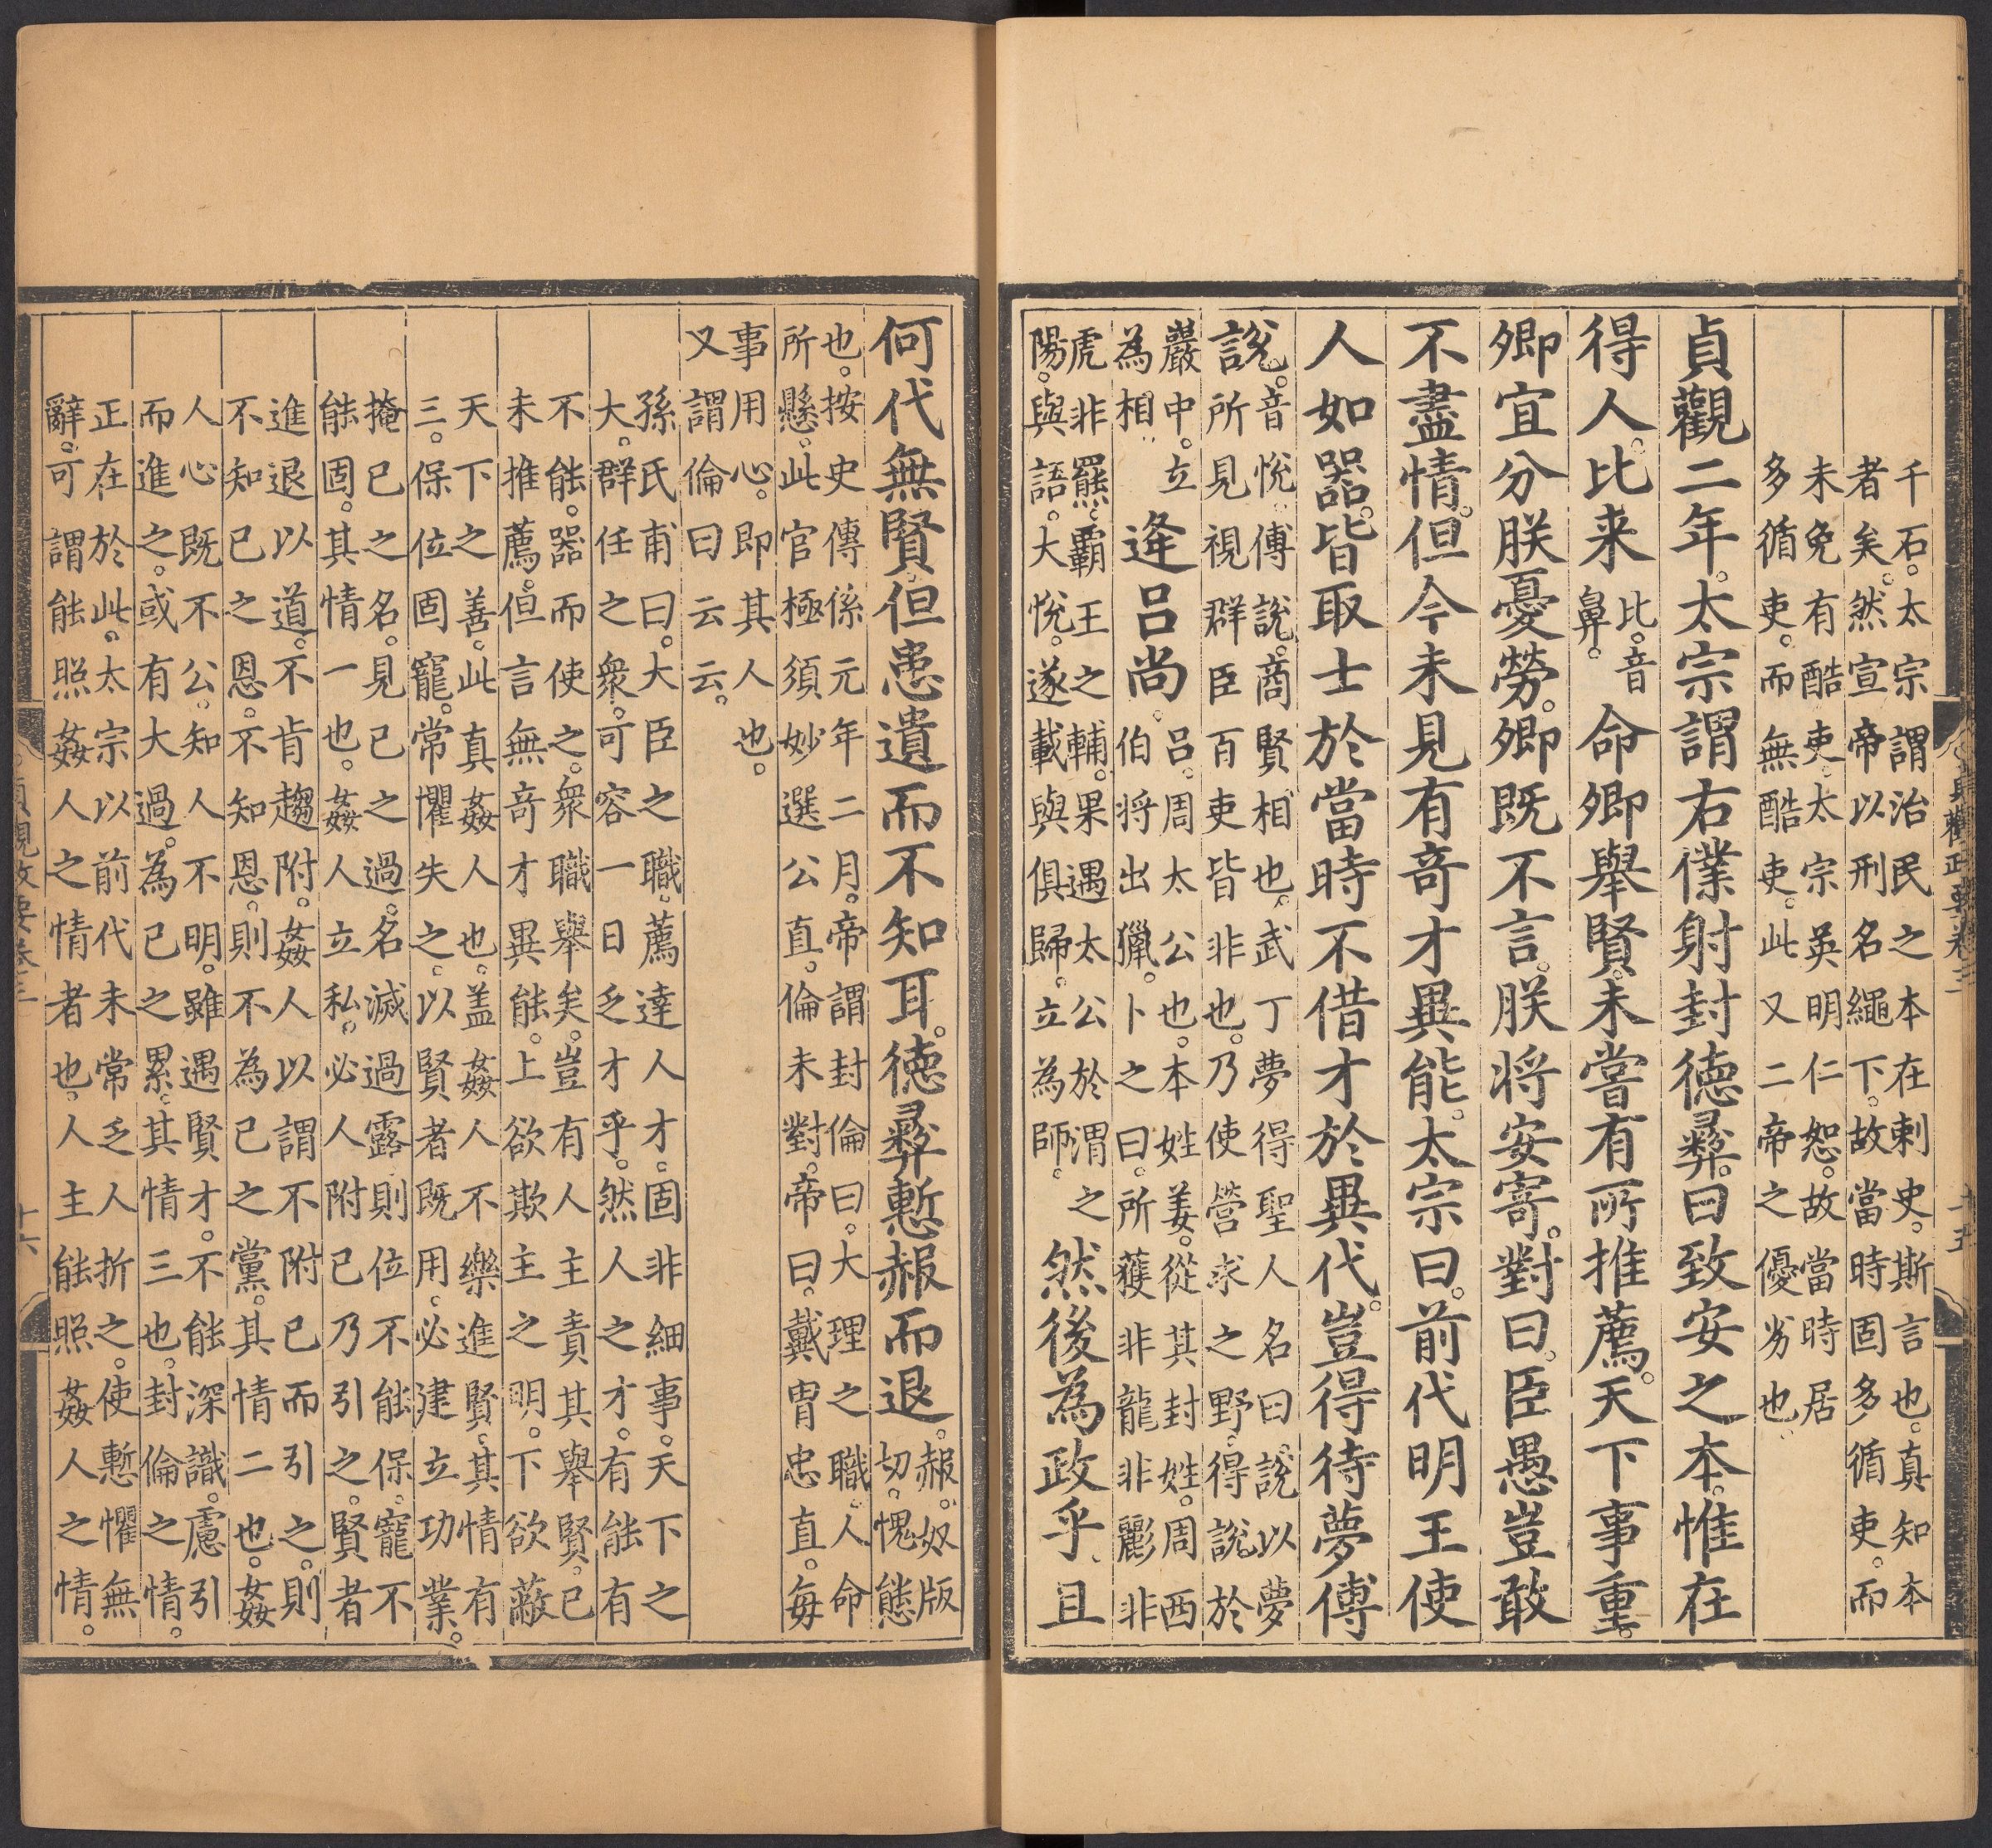 千石。太宗謂治民之本在刺史。斯言也。真知本
者矣。然宣帝以刑名繩下。故當時固多循吏。而
未免有酷吏。太宗英明仁恕。故當時居
多循吏。而無酷吏。此又二帝之優劣也。
貞觀二年。太宗謂右僕射封德彝。曰致安之本。惟在
得人。比来比。音鼻。命卿舉賢。未嘗有所推薦。天下事重。
卿宜分朕憂勞。卿既不言。朕将安寄。對曰。臣愚豈敢
不盡情。但今未見有竒才異能。太宗曰。前代明王使
人如器。皆取士於當時不借才於異代。豈得待夢傅
說。音悅。傅說。商賢相也。武丁夢得聖人名曰說。以夢
所見視群臣百吏皆非也。乃使營求之野。得說。於
巖中。立
為相。逢呂尚。呂。周太公也。本姓姜。從其封姓。周西
伯将出獵。卜之曰。所獲非龍非彲非
虎非羆。霸王之輔。果遇太公於渭之
陽。與語。大悅。遂載與俱歸。立為師。然後為政乎。且
貞觀政要卷三
十五
何代無賢但患遺而不知耳。德彝慙赧而退。赧。奴版
切。愧態
也。按史傳係元年二月。帝謂封倫曰。大理之職。人命
所懸。此官極須妙選公直。倫未對。帝曰。戴冑忠直。毎
事用心。即其人也。
又謂倫曰云云。
孫氏甫曰。大臣之職。薦達人才。固非細事。天下之
大。群任之衆。可容一日乏才乎。然人之才。有能有
不能。器而使之。衆職舉矣。豈有人主責其舉賢。已
未推薦。但言無竒才異能。上欲欺主之明。下欲蔽
天下之善。此真姦人也。盖姦人不樂進賢。其情有
三。保位固寵。常懼失之。以賢者既用。必建立功業。
掩已之名。見已之過。名滅過露。則位不能保。寵不
能固。其情一也。姦人立私。必人附已乃引之。賢者
進退以道。不肯趨附。姦人以謂不附已而引之。則
不知已之恩。不知恩。則不為已之黨。其情二也。姦
人心既不公。知人不明。雖遇賢才。不能深識。慮引
而進之。或有大過。為已之累。其情三也。封倫之情。
正在於此。太宗以前代未常乏人折之。使慙懼無
辭。可謂能照姦人之情者也。人主能照姦人之情。
貞觀政要卷三
十六